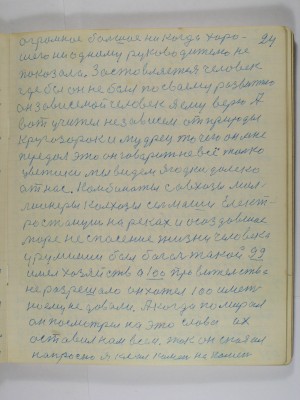 огромное большое на когда хоро-
шего ни одному руководителю не 24
показала. Заставляется человек
где бы он не был по своему развитию
он зависемой человек я ему верю А
вот учител не зависем от природы
Кругозорок и мудрец то чего он мне
передал это он говорит не всё только
цветики мы видем ягодки далеко
от нас. Комбинаты Совхозы мил-
лионеры Колхозы со своими Елект-
ростанции на реках и осоздавшее
море не спасение жизни человека
у румынии был богач такой 99
имел хозяйств а 100 Правительство
не разрешало он хотел 100 иметь
но ему не давали. А когда помирал
он посмотрел на это слова их
оставил нам всем. Так он сказал
напрасно я клал камет на камет